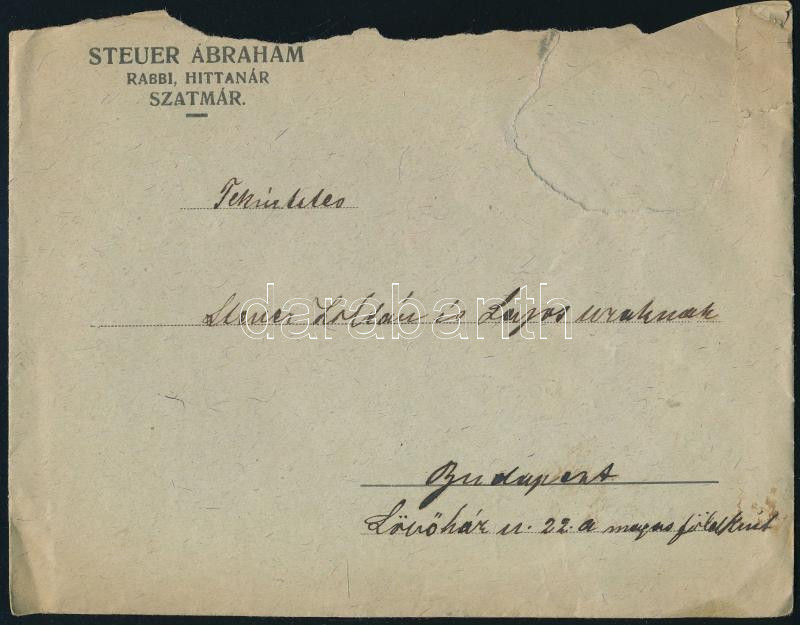 STEUER ÁBRAHAM
RABBI, HITTANÁR
SZATMÁR.
Tekintetes
Steuer Zoltán és Lajos uraknak
darabanth
Budapest
Lövőház u. 22. a magas földszint